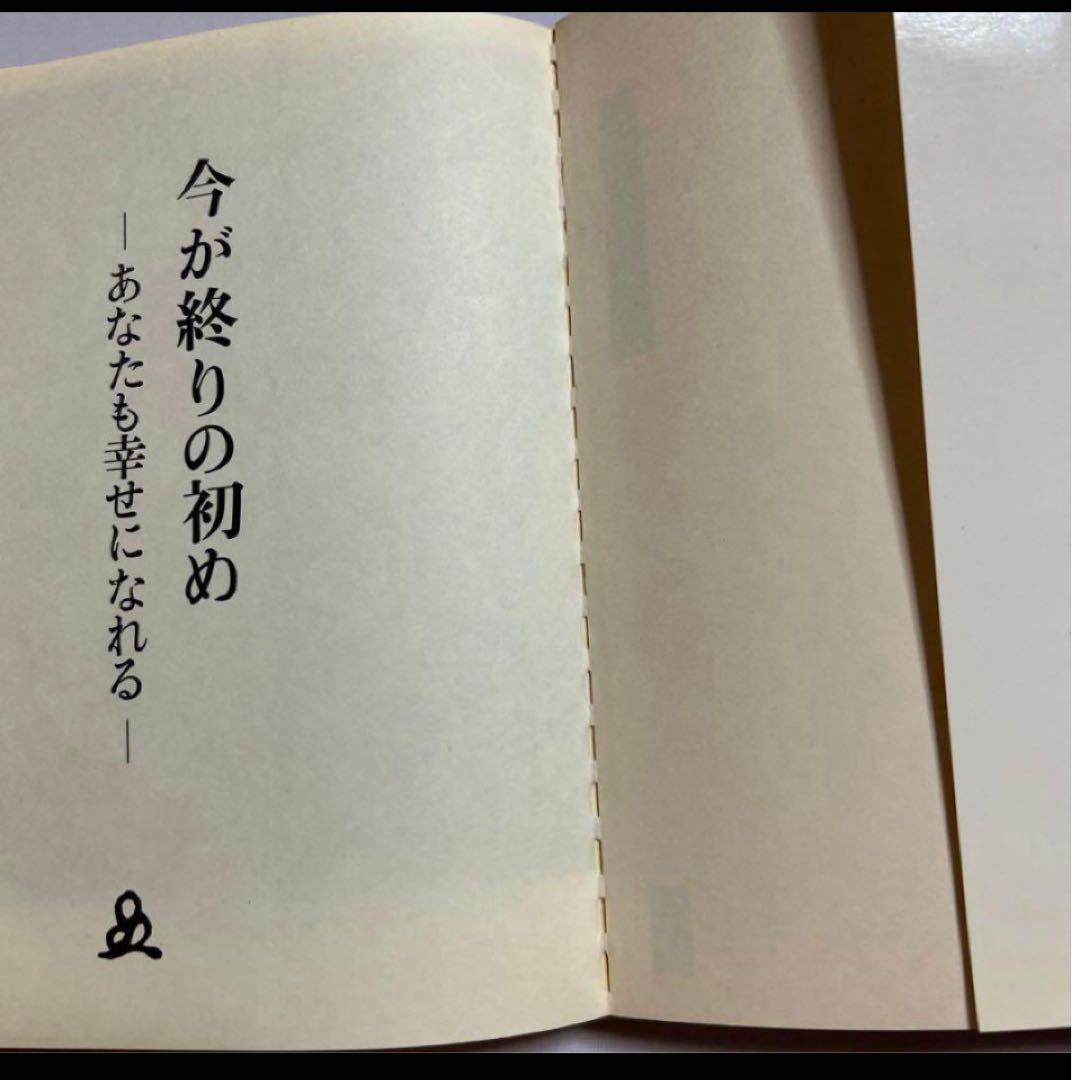 今が終りの初め
―あなたも幸せになれる―